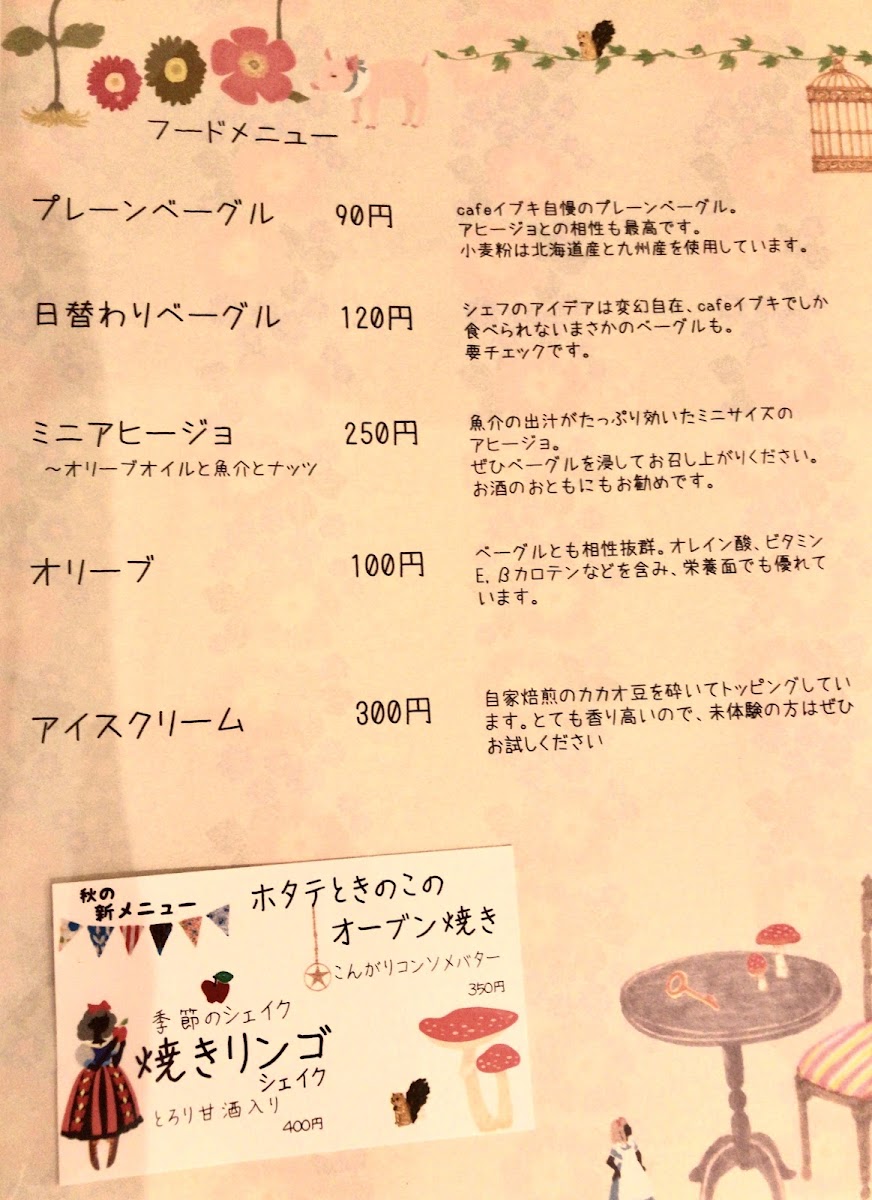 フードメニュー
プレーンベーグル 90円
cafeイブキ自慢のプレーンベーグル。
アヒージョとの相性も最高です。
小麦粉は北海道産と九州産を使用しています。
日替わりベーグル 120円
シェフのアイデアは変幻自在、cafeイブキでしか
食べられないまさかのベーグルも。
要チェックです。
ミニアヒージョ 250円
～オリーブオイルと魚介とナッツ
魚介の出汁がたっぷり効いたミニサイズの
アヒージョ。
ぜひベーグルを浸してお召し上がりください。
お酒のおともにもお勧めです。
オリーブ 100円
ベーグルとも相性抜群。オレイン酸、ビタミン
E, βカロテンなどを含み、栄養面でも優れて
います。
アイスクリーム 300円
自家焙煎のカカオ豆を砕いてトッピングしてい
ます。とても香り高いので、未体験の方はぜひ
お試しください
秋の
新メニュー
ホタテときのこの
オーブン焼き
こんがりコンソメバター
350円
季節のシェイク
焼きリンゴ
シェイク
とろり甘酒入り
400円